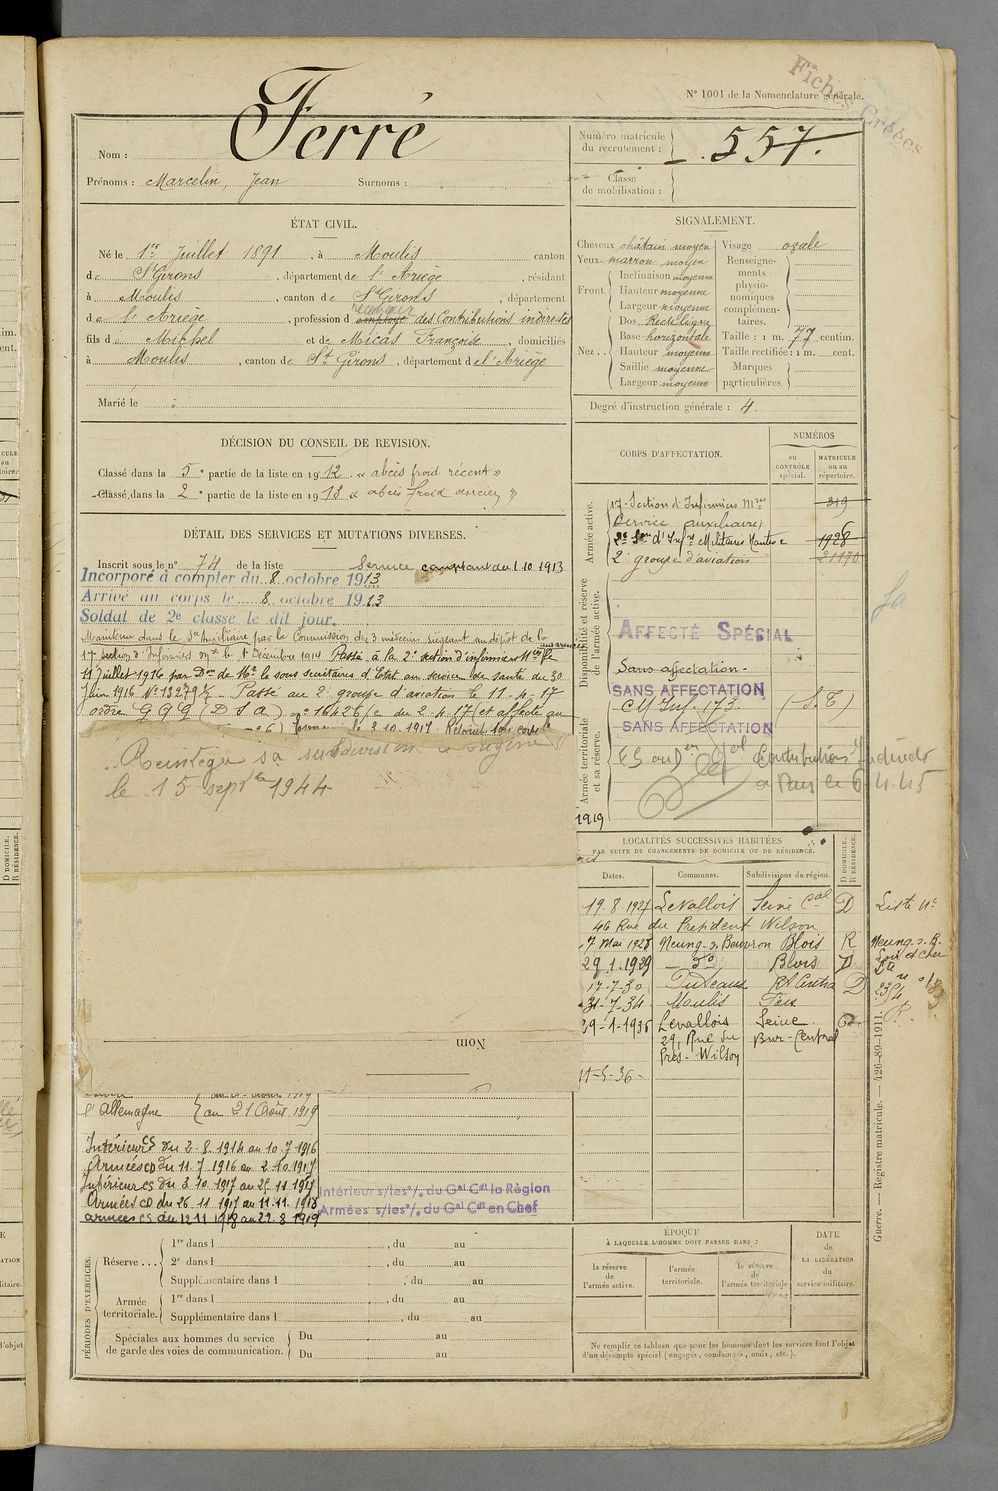 Fiches Créées
N° 1001 de la Nomenclature générale.
Nom : Ferré
Prénoms : Marcelin, Jean Surnoms :
Numéro matricule du recrutement : 557.
Classe de mobilisation :
ÉTAT CIVIL.
Né le 1er Juillet 1891, à Moulis canton
de St Girons, département de l'Ariège, résidant
à Moulis, canton de St Girons, département
de l'Ariège, profession d employé des Contributions indirectes
fils de Michel et de Micas Françoise, domiciliés
à Moulis, canton de St Girons, département de l'Ariège
Marié le
SIGNALEMENT.
Cheveux châtain moyen
Yeux marron moyen
Front. Inclinaison moyenne
Hauteur moyenne
Largeur moyenne
Nez... Dos Rectiligne
Base horizontale
Hauteur moyenne
Saillie moyenne
Largeur moyenne
Visage ovale
Renseignements physionomiques complémentaires.
Taille : 1 m. 77 centim.
Taille rectifiée : 1 m. cent.
Marques particulières.
Degré d'instruction générale : 4.
DÉCISION DU CONSEIL DE REVISION.
Classé dans la 5e partie de la liste en 1912. « abcès froid récent »
Classé dans la 2e partie de la liste en 1913 « abcès froid ancien »
DÉTAIL DES SERVICES ET MUTATIONS DIVERSES.
Inscrit sous le n° 74 de la liste Service comptant du 1.10.1913
Incorporé à compter du 8 octobre 1913
Arrivé au corps le 8 octobre 1913
Soldat de 2e classe le dit jour.
Maintenu dans le Sce Auxiliaire par la Commission de 3 médecins siégeant au dépôt de la
17e section d'Infirmiers mres le 1 Décembre 1914 Passé à la 2e section d'infirmiers Mres le
11 Juillet 1916 par Don de Mr le sous secrétaire d'Etat au service de santé du 30
Juin 1916 No 13279 - Passé au 2e groupe d'aviation le 11-4-17
ordre G Q G (D S A) no 16426/c du 2-4-17 et affecté au
le 2.10.1917.
Réintégré sa subdivision d'origine
le 15 septbre 1944
Nom
CORPS D'AFFECTATION.
NUMÉROS
au contrôle spécial.
MATRICULE ou au répertoire.
Armée active.
17e Section d'Infirmiers Mres 319
(Service auxiliaire)
2e Son d'Infrs Militaires 1926
2e groupe d'aviation 21170
Disponibilité et réserve de l'armée active.
AFFECTÉ SPÉCIAL
Sans affectation.
SANS AFFECTATION
CM Inf. 173. (S.T)
SANS AFFECTATION
Armée territoriale et sa réserve.
Contributions Indirectes
à Paris le 6.4.45
1919
LOCALITÉS SUCCESSIVES HABITÉES
PAR SUITE DE CHANGEMENTS DE DOMICILE OU DE RÉSIDENCE.
Dates. Communes. Subdivisions de région. D DOMICILE. R RÉSIDENCE.
19.8.1927 Levallois Seine Cal D
46 Rue du President Wilson
7 Mai 1928 Neung-s.-Beuvron Blois R
29.1.1929 do Blois D
17-7-30 Puteaux D
31-7-34 Moulis
29-1-1936 Levallois Seine
29, Rue du Bur-Central
Prés. Wilson
11-5-36-
Neung-s.-B.
Loir et Cher
l'Allemagne au 21 Août 1919
Intérieur CS du 2-8.1914 au 10.7.1916
Armées CD du 11.7.1916 au 2.10.1917
Intérieur CS du 3.10.1917 au 25.11.1917
Armées CD du 26.11.1917 au 11.11.1918
armées CS du 12.11.1918 au 22.8.1919
Intérieur s/les o/. du Gal Cdt la Région
Armées s/les o/. du Gal Cdt en Chef
PÉRIODES D'EXERCICES.
Réserve... 1re dans l , du au
2e dans l , du au
Supplémentaire dans l , du au
Armée territoriale. 1re dans l , du au
Supplémentaire dans l , du au
Spéciales aux hommes du service de garde des voies de communication. Du au
Du au
ÉPOQUE
À LAQUELLE L'HOMME DOIT PASSER DANS :
la réserve de l'armée active.
l'armée territoriale.
la réserve de l'armée territoriale
DATE de LA LIBÉRATION du service militaire.
Ne remplir ce tableau que pour les hommes dont les services font l'objet
d'un décompte spécial (engagés, condamnés, omis, etc.).
Guerre. — Registre matricule. — 426-89-1911.